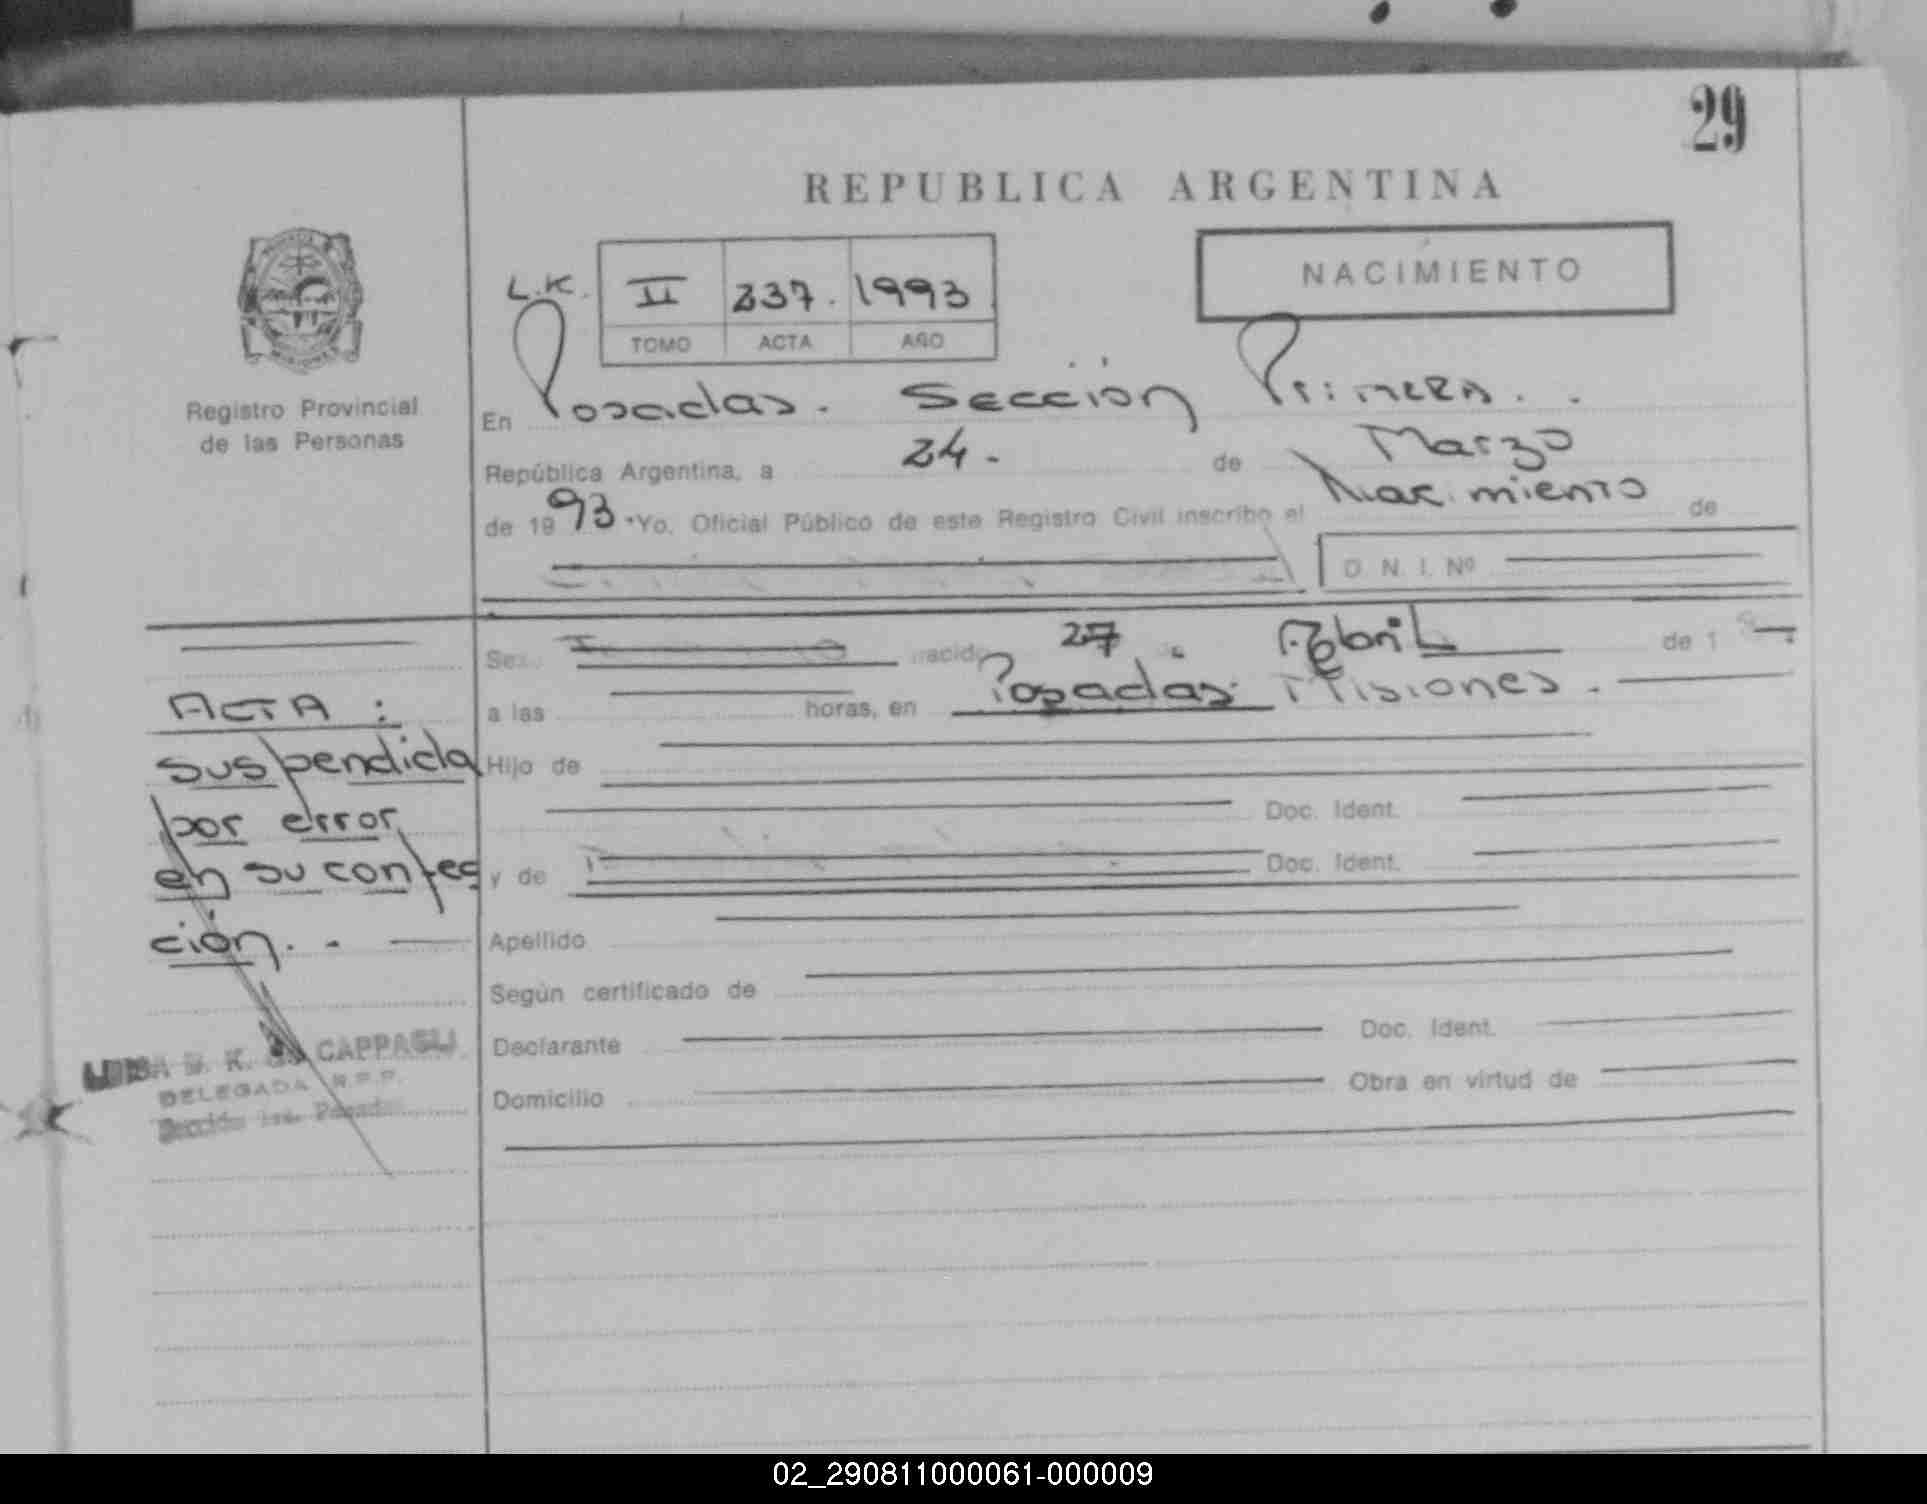 29
REPUBLICA ARGENTINA
NACIMIENTO
L.K. II 237. 1993
TOMO ACTA AÑO
Registro Provincial
de las Personas
En Posadas. Sección Primera.
República Argentina, a 24. de Marzo
de 1993. Yo, Oficial Público de este Registro Civil inscribo el Nacimiento de
D. N. I. Nº
Sexo nacido 27 de Abril de 1
a las horas, en Posadas: Misiones.
ACTA:
suspendida
por error
en su confec
ción.
Hijo de
Doc. Ident.
y de Doc. Ident.
Apellido
Según certificado de
Declarante Doc. Ident.
Domicilio Obra en virtud de
LUISA M. K. CAPPAGLI
DELEGADA R.P.P.
Sección 1ra. Posadas
02_290811000061-000009